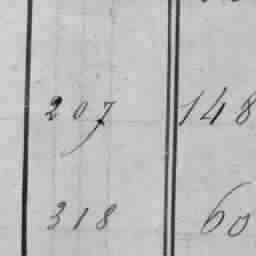 207 148
318 60